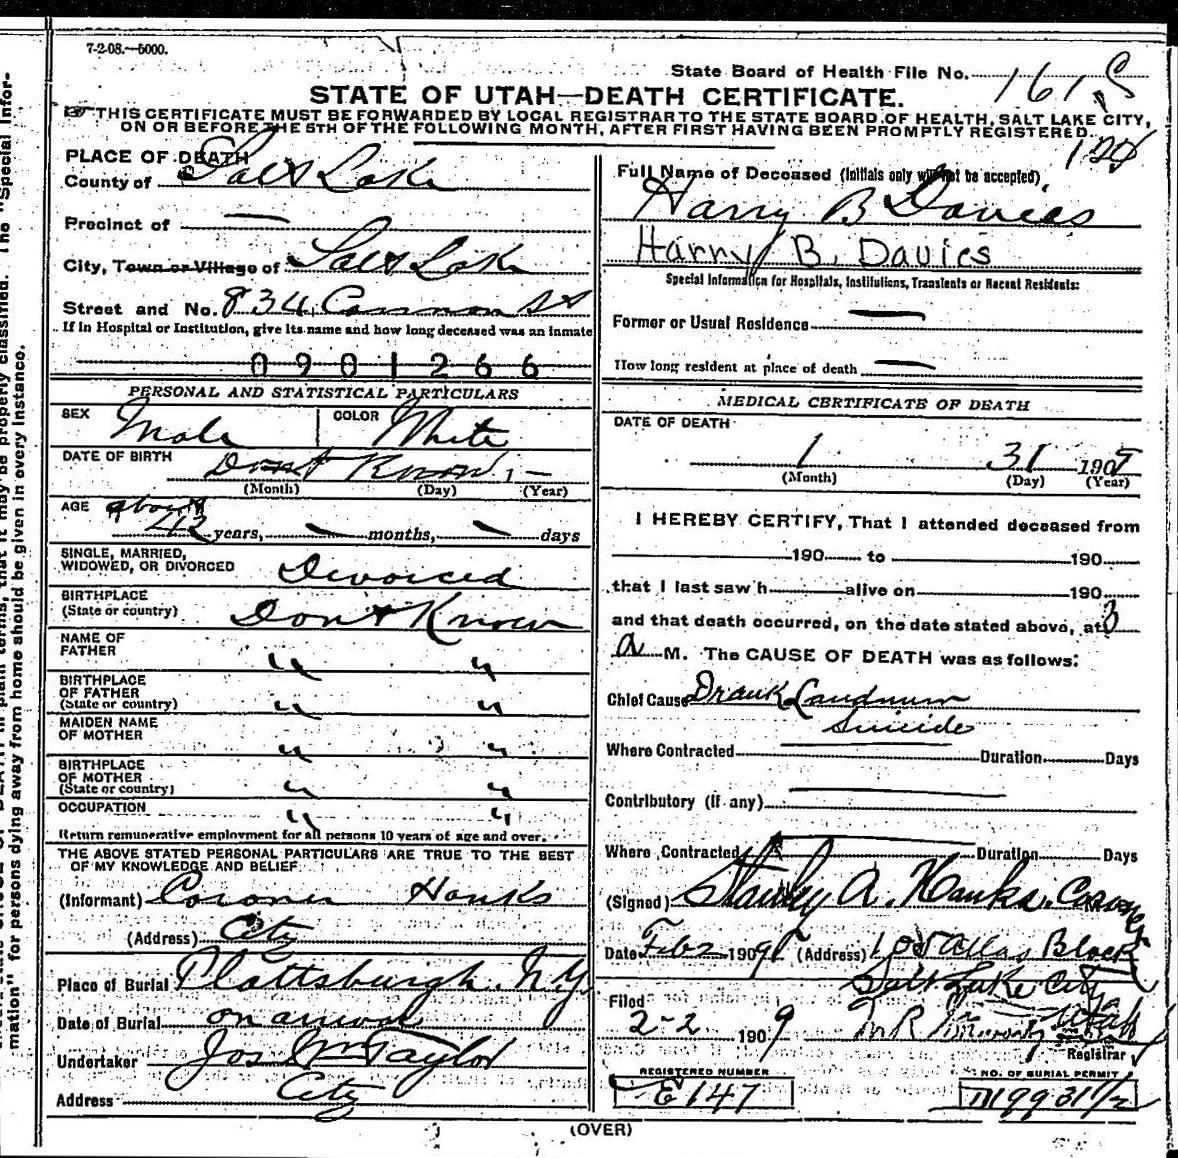 7-2-08.—5000.
State Board of Health File No. 161
STATE OF UTAH—DEATH CERTIFICATE.
THIS CERTIFICATE MUST BE FORWARDED BY LOCAL REGISTRAR TO THE STATE BOARD OF HEALTH, SALT LAKE CITY,
ON OR BEFORE THE 5TH OF THE FOLLOWING MONTH, AFTER FIRST HAVING BEEN PROMPTLY REGISTERED.
PLACE OF DEATH
County of Salt Lake
Precinct of —
City, Town or Village of Salt Lake
Street and No. 834 Cannon St
If in Hospital or Institution, give its name and how long deceased was an inmate
0901266
PERSONAL AND STATISTICAL PARTICULARS
SEX Male COLOR White
DATE OF BIRTH Dont Know 1 —
(Month) (Day) (Year)
AGE about
42 years, — months, — days
SINGLE, MARRIED,
WIDOWED, OR DIVORCED Divorced
BIRTHPLACE
(State or country) Dont Know
NAME OF
FATHER " "
BIRTHPLACE
OF FATHER
(State or country) " "
MAIDEN NAME
OF MOTHER " "
BIRTHPLACE
OF MOTHER
(State or country) " "
OCCUPATION " "
Return remunerative employment for all persons 10 years of age and over.
THE ABOVE STATED PERSONAL PARTICULARS ARE TRUE TO THE BEST
OF MY KNOWLEDGE AND BELIEF
(Informant) Coroner Hanks
(Address) City
Place of Burial Plattsburgh. N.Y.
Date of Burial on arrival
Undertaker Jos Wm Taylor
Address City
Full Name of Deceased (Initials only will not be accepted)
Harry B Davies
Harry B. Davies
Special Information for Hospitals, Institutions, Transients or Recent Residents:
Former or Usual Residence —
How long resident at place of death —
MEDICAL CERTIFICATE OF DEATH
DATE OF DEATH
1 31 190
(Month) (Day) (Year)
I HEREBY CERTIFY, That I attended deceased from
190 to 190
that I last saw h alive on 190
and that death occurred, on the date stated above, at 3
a M. The CAUSE OF DEATH was as follows:
Chief Cause Drank Laudnum
Suicide
Where Contracted Duration Days
Contributory (if any)
Where Contracted Duration Days
(Signed) Stanley A. Hanks. Coroner
Date Feb 2 1909 (Address) Atlas Block
Salt Lake City
Utah
Filed
2-2 1909
Registrar
REGISTERED NUMBER
E147
NO. OF BURIAL PERMIT
(OVER)
mation" for persons dying away from home should be given in every instance.